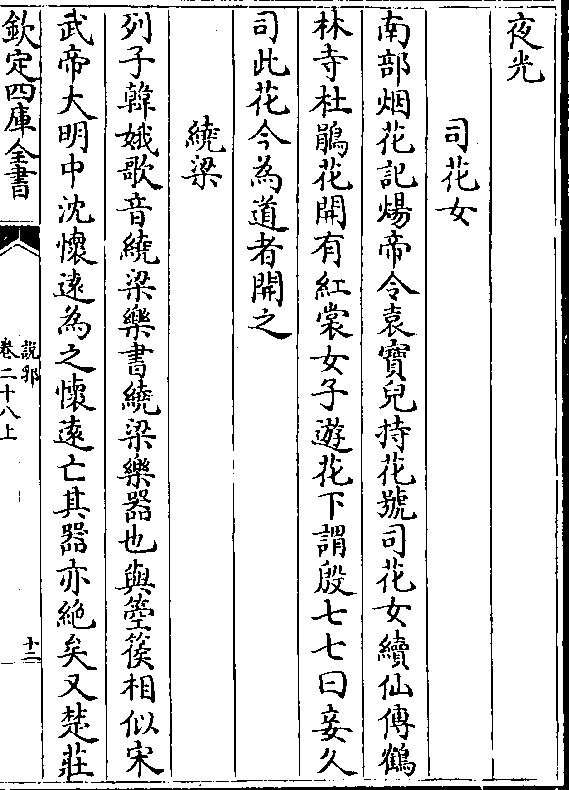 夜光
司花女
南部烟花記煬帝令袁寶兒持花號司花女續仙傳鶴
林寺杜鵑花開有紅裳女子遊花下謂殷七七曰妾久
司此花今為道者開之
繞梁
列子韓娥歌音繞梁樂書繞梁樂器也與箜篌相似宋
武帝大明中沈懷遠為之懷遠亡其器亦絶矣又楚莊
欽定四庫全書
說郛
卷二十八上
十二